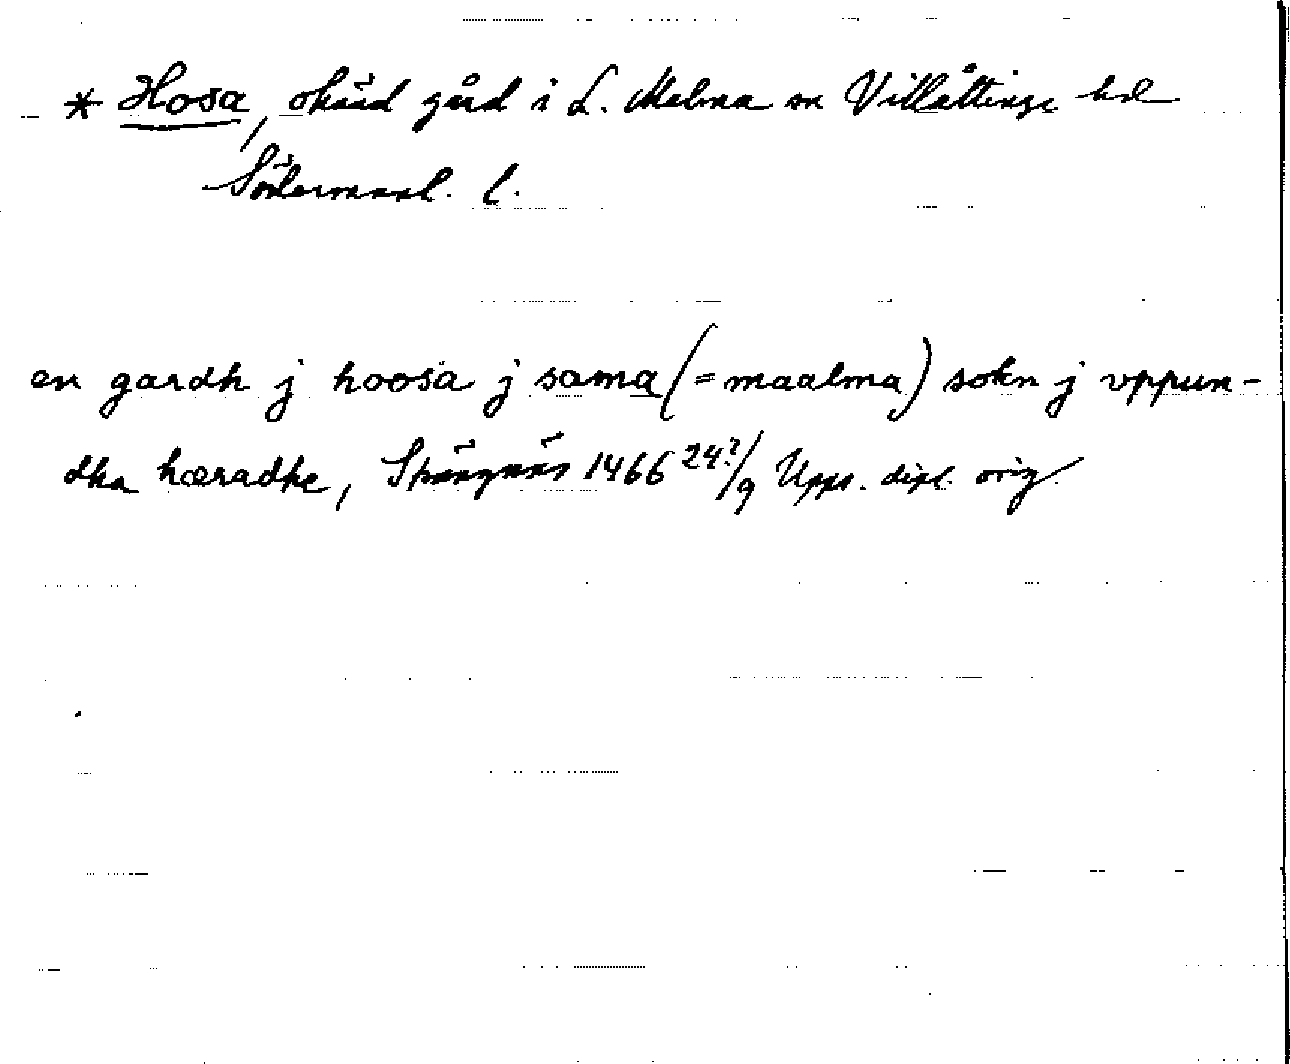 * Hosa, okänd gård i L. Malma sn Villåttinge hd
Södermanl. l.
en gardh j hoosa j sama (= maalma) sokn j vppun-
dha hæradhe, Strängnäs 1466 24?/9 Upps. dipl. orig.